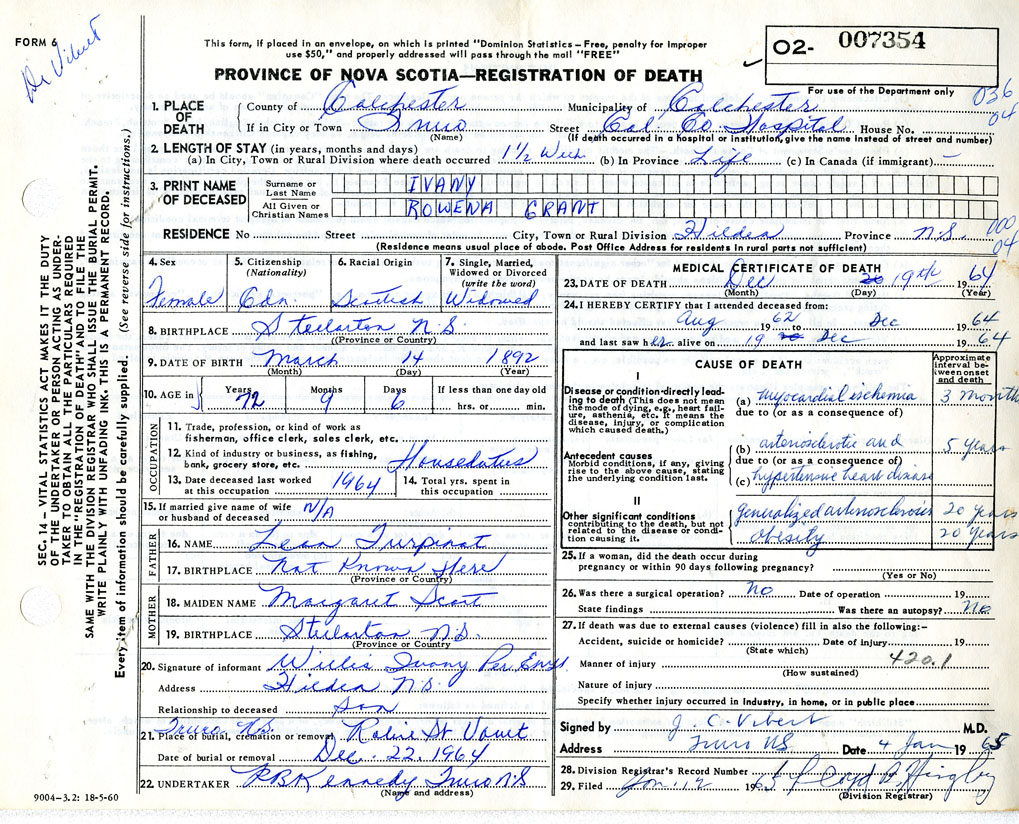 FORM 6
Dr Vibert
This form, if placed in an envelope, on which is printed "Dominion Statistics – Free, penalty for improper
use $50," and properly addressed will pass through the mail "FREE"
02- 007354
PROVINCE OF NOVA SCOTIA—REGISTRATION OF DEATH
For use of the Department only
036
04
1. PLACE OF DEATH
County of Colchester Municipality of Colchester
If in City or Town Truro Street Col. Co Hospital House No.
(Name) (If death occurred in a hospital or institution, give the name instead of street and number)
2. LENGTH OF STAY (in years, months and days)
(a) In City, Town or Rural Division where death occurred 1½ Week (b) In Province Life (c) In Canada (if immigrant) –
3. PRINT NAME OF DECEASED
Surname or Last Name IVANY
All Given or Christian Names ROWENA GRANT
RESIDENCE No Street City, Town or Rural Division Hilden Province N.S.
000
04
(Residence means usual place of abode. Post Office Address for residents in rural parts not sufficient)
4. Sex Female
5. Citizenship (Nationality) Cdn.
6. Racial Origin Scottish
7. Single, Married, Widowed or Divorced (write the word) Widowed
8. BIRTHPLACE Stellarton N.S.
(Province or Country)
9. DATE OF BIRTH March 14 1892
(Month) (Day) (Year)
10. AGE in Years 72 Months 9 Days 6 If less than one day old hrs. or min.
OCCUPATION
11. Trade, profession, or kind of work as fisherman, office clerk, sales clerk, etc.
12. Kind of industry or business, as fishing, bank, grocery store, etc. Houseduties
13. Date deceased last worked at this occupation 1964 14. Total yrs. spent in this occupation
15. If married give name of wife or husband of deceased N/A
FATHER
16. NAME Turpinat
17. BIRTHPLACE Not Known Here
(Province or Country)
MOTHER
18. MAIDEN NAME Margaret Scott
19. BIRTHPLACE Stellarton N.S.
(Province or Country)
20. Signature of informant Willis Ivany Per
Address Hilden N.S.
Relationship to deceased Son
21. Place of burial, cremation or removal Truro N.S. Robie St Vault
Date of burial or removal Dec. 22. 1964
22. UNDERTAKER P.B. Kennedy Truro N.S
(Name and address)
9004–3.2: 18-5-60
MEDICAL CERTIFICATE OF DEATH
23. DATE OF DEATH Dec 19th 1964
(Month) (Day) (Year)
24. I HEREBY CERTIFY that I attended deceased from:
Aug 1962 to Dec 1964
and last saw her alive on 19 Dec 1964
CAUSE OF DEATH
Approximate interval between onset and death
I
Disease or condition directly leading to death (This does not mean the mode of dying, e.g., heart failure, asthenia, etc. It means the disease, injury, or complication which caused death.)
(a) myocardial ischemia 3 months
due to (or as a consequence of)
Antecedent causes
Morbid conditions, if any, giving rise to the above cause, stating the underlying condition last.
(b) arteriosclerotic and 5 years
due to (or as a consequence of)
(c) hypertensive heart disease
II
Other significant conditions
contributing to the death, but not related to the disease or condition causing it.
generalized arteriosclerosis 20 years
obesity 20 years
25. If a woman, did the death occur during pregnancy or within 90 days following pregnancy?
(Yes or No)
26. Was there a surgical operation? No Date of operation 19
State findings Was there an autopsy? No
27. If death was due to external causes (violence) fill in also the following:–
Accident, suicide or homicide? Date of injury 19
(State which)
420.1
Manner of injury
(How sustained)
Nature of injury
Specify whether injury occurred in industry, in home, or in public place
Signed by J. C. Vibert M.D.
Address Truro NS Date 4 Jan 1965
28. Division Registrar's Record Number
29. Filed Jan. 12 1965
(Division Registrar)
SEC. 14 – VITAL STATISTICS ACT MAKES IT THE DUTY
OF THE UNDERTAKER OR PERSON ACTING AS UNDER-
TAKER TO OBTAIN ALL THE PARTICULARS REQUIRED
IN THE "REGISTRATION OF DEATH" AND TO FILE THE
SAME WITH THE DIVISION REGISTRAR WHO SHALL ISSUE THE BURIAL PERMIT.
WRITE PLAINLY WITH UNFADING INK. THIS IS A PERMANENT RECORD.
Every item of information should be carefully supplied. (See reverse side for instructions.)